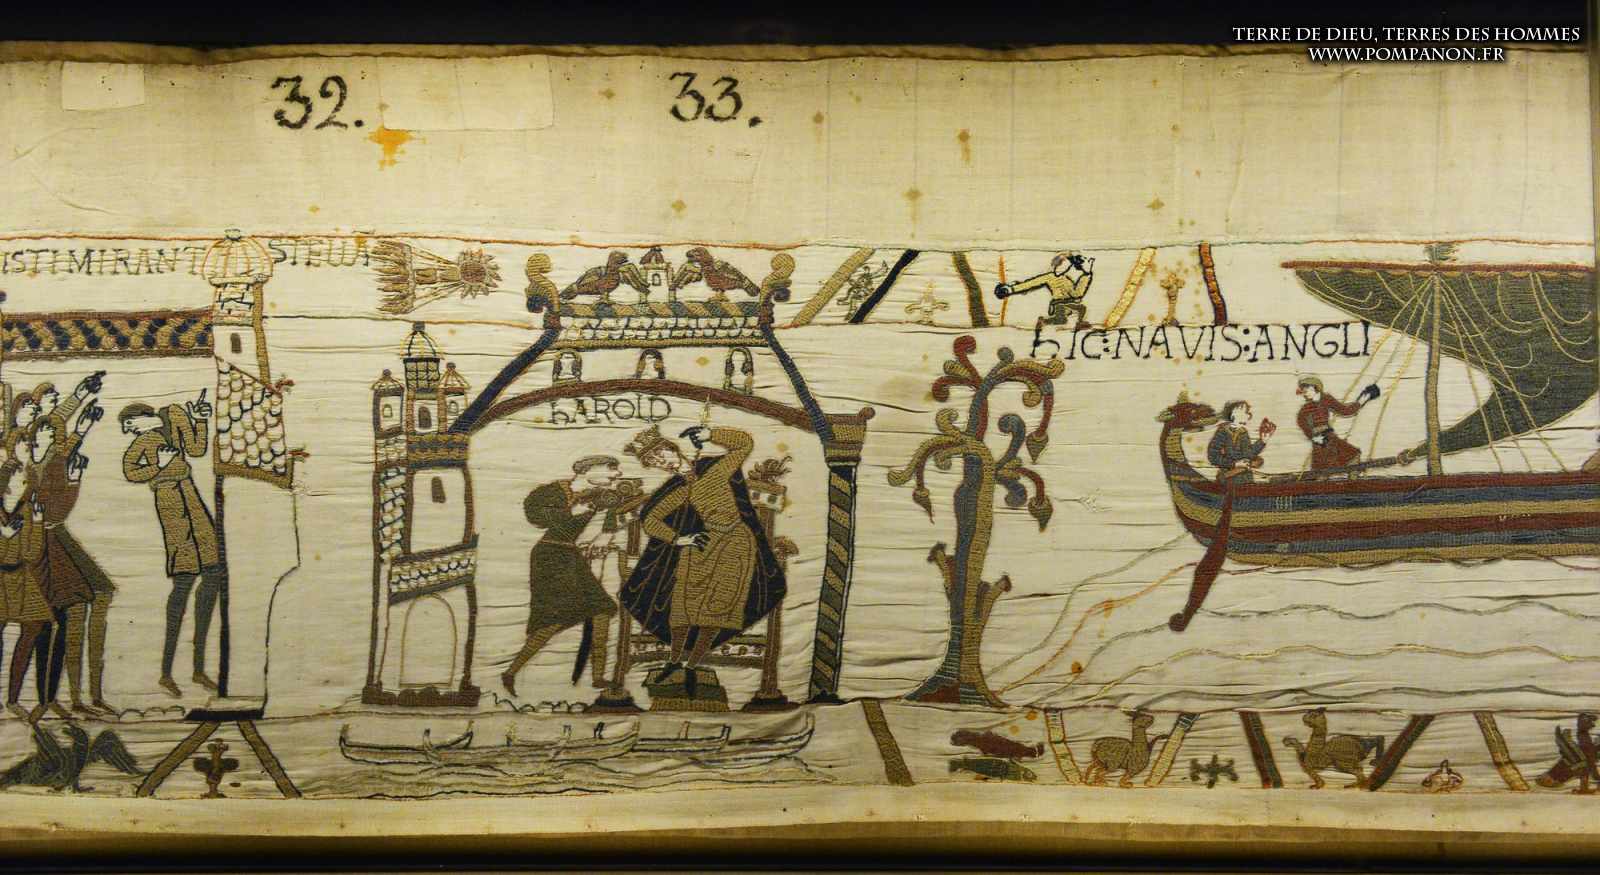 TERRE DE DIEU, TERRES DES HOMMES
WWW.POMPANON.FR
32.
33.
ISTI MIRANT STELLA
HAROLD
HIC: NAVIS: ANGLI